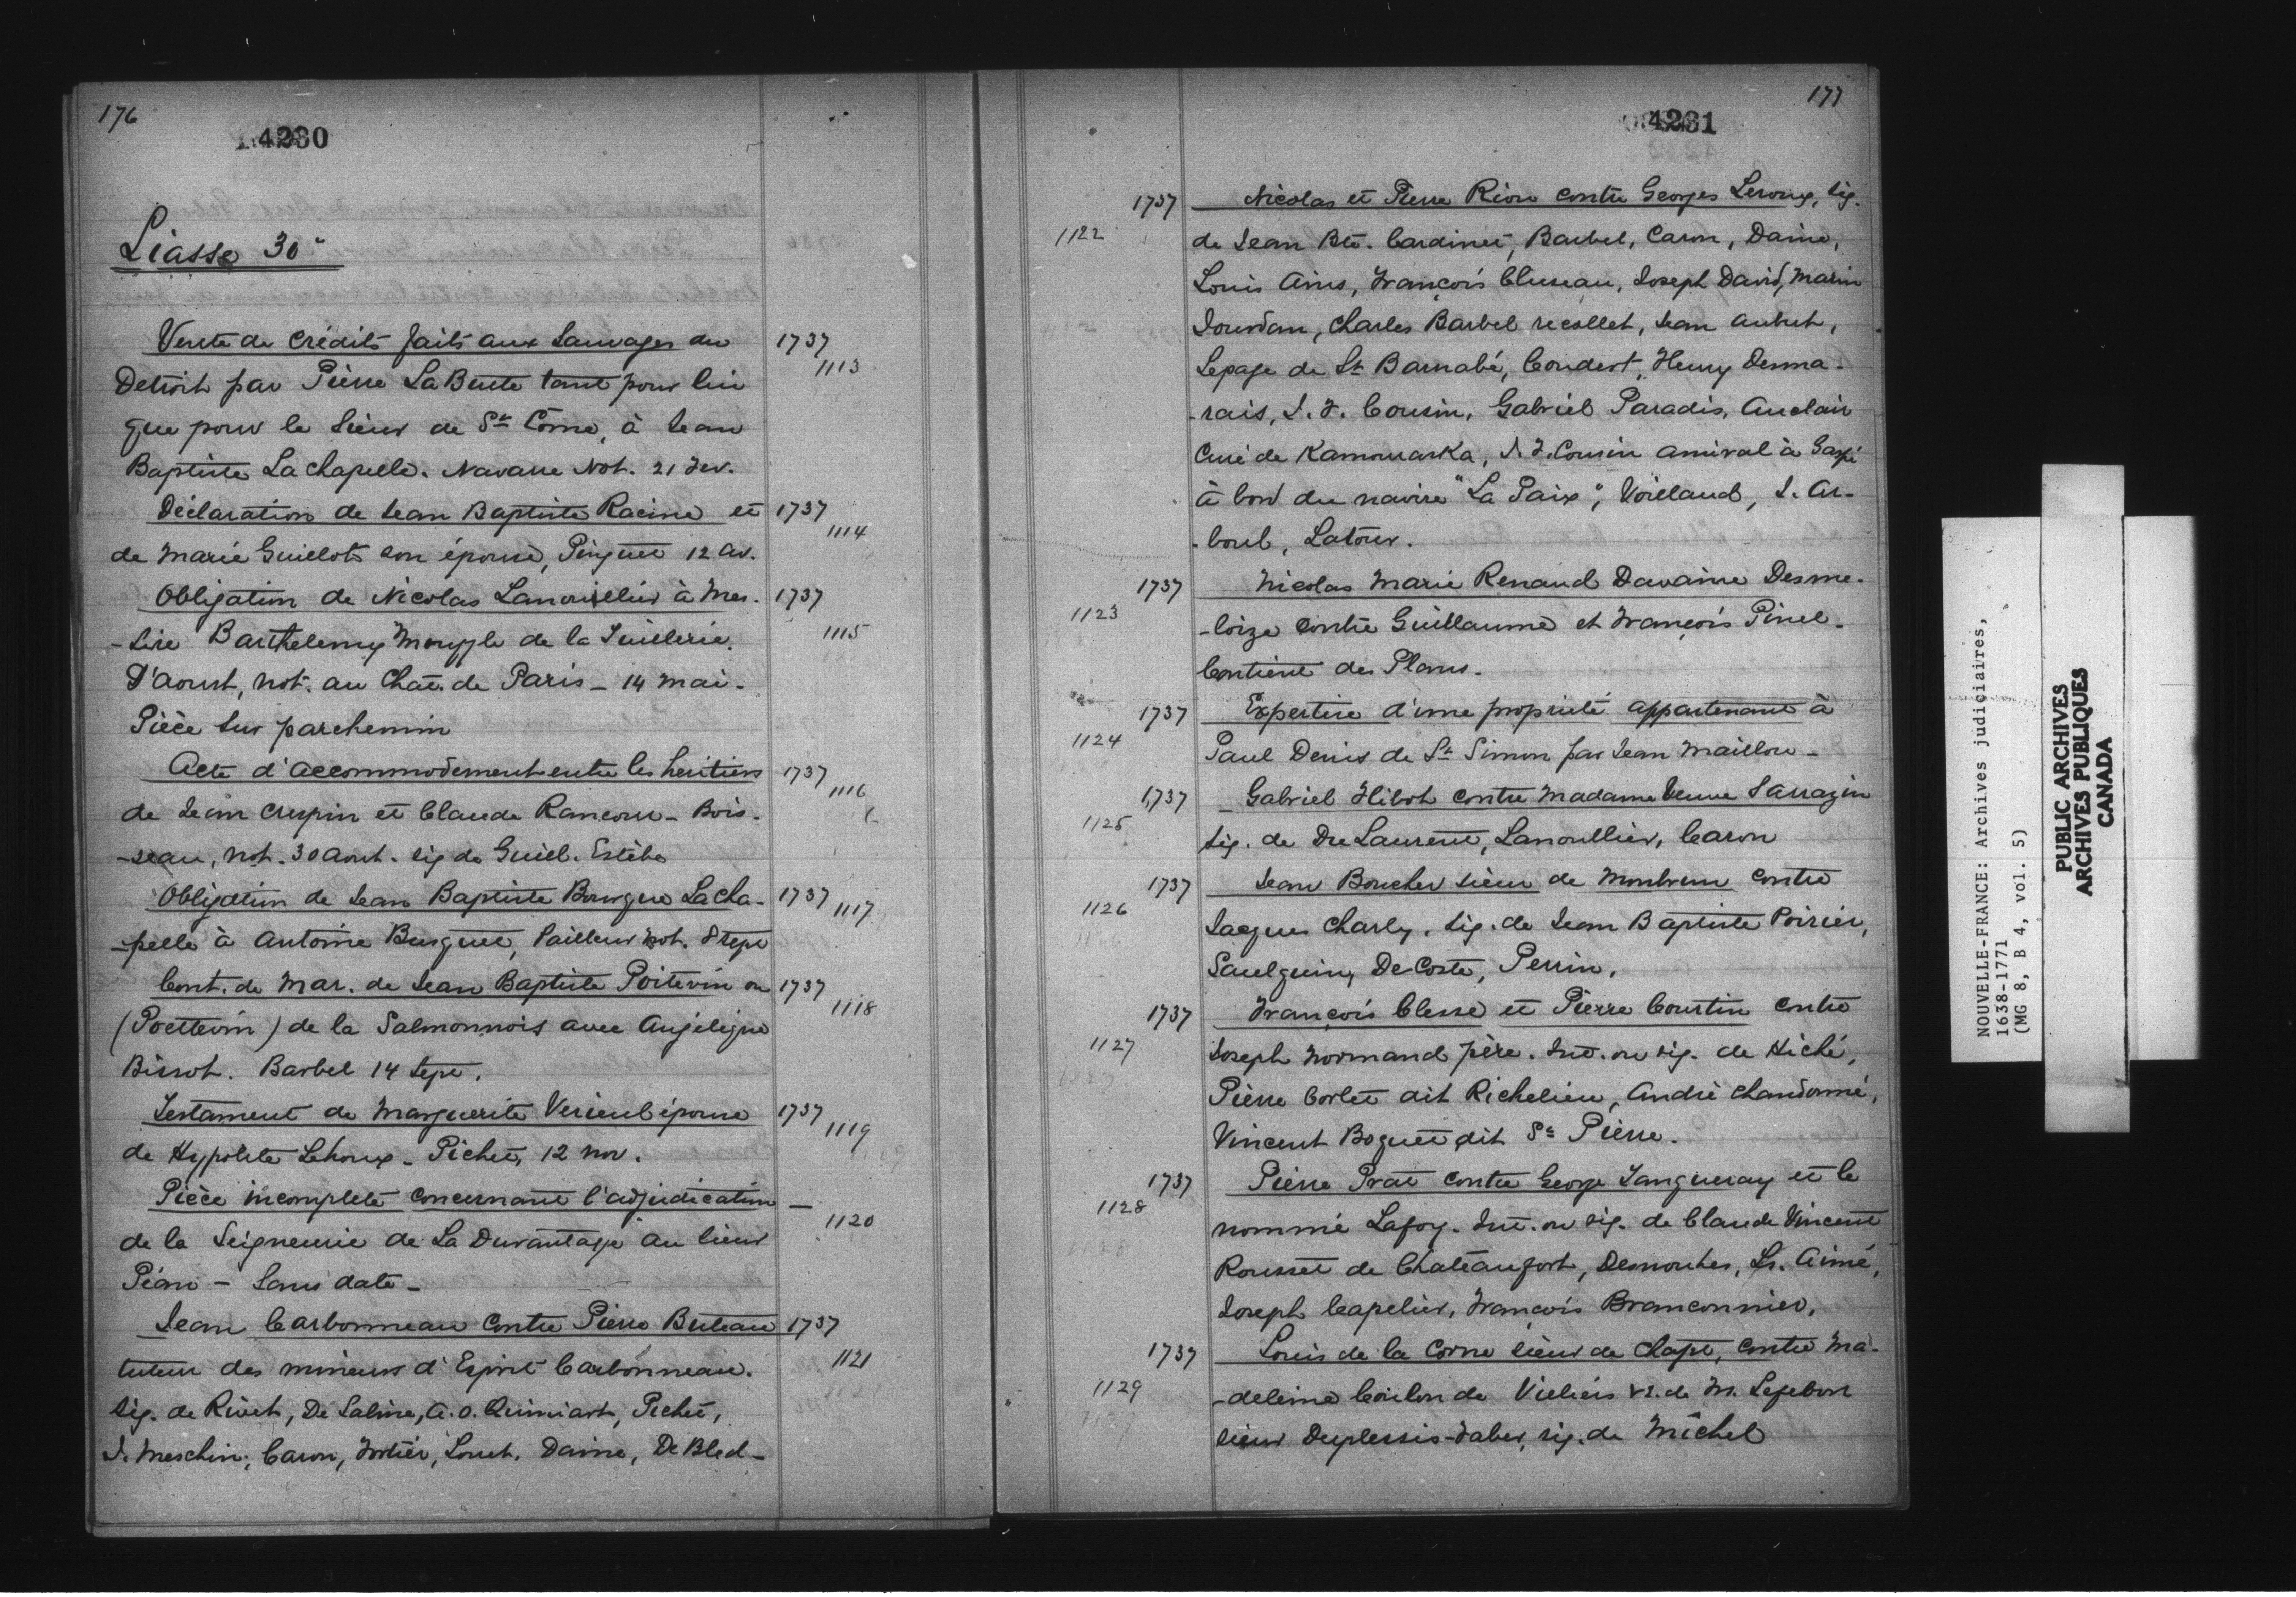 176
4230
Liasse 30e
Vente de Crédits faits aux Sauvages du 1737
Detroit par Pierre LaButte tant pour lui 1113
que pour le Sieur de St Côme, à Jean
Baptiste La Chapelle. Navarre Not. 21 Fev.
Déclaration de Jean Baptiste Racine et 1737
de Marie Guillot son épouse, Pinguet 12 av. 1114
Obligation de Nicolas Lanouiellier à Mes- 1737
-sire Barthelemy Mouffle de la Tuillerie. 1115
D'aoust, not. au Chat. de Paris - 14 mai.
Pièce sur parchemin
Acte d'accommodement entre les heritiers 1737
de Jean Crespin et Claude Rancour - Bois- 1116
-seau, not. 30 aout. sig de Guill. Estèbe
Obligation de Jean Baptiste Bourgue Lacha- 1737
-pelle à Antoine Busquet, Pailleur not. 8 sept 1117
Cont. de Mar. de Jean Baptiste Poitevin ou 1737
(Poettevin) de la Salmonnois avec Angélique 1118
Bissot. Barbel 14 Sept.
Testament de Marguerite Verieul épouse 1737
de Hypolite Lehoux - Pichet, 12 nov. 1119
Pièce incomplete concernant l'adjudication —
de la Seigneurie de La Durantaye au Sieur 1120
Péan - Sans date -
Jean Carbonneau contre Pierre Buteau 1737
tuteur des mineurs d'Esprit Carbonneau. 1121
Sig. de Rivet, De Saline, A. O. Quiniart, Pichet,
J. Meschin, Caron, Fortier, Louet, Daine, De Bled-
177
4231
1737 Nicolas et Pierre Riou contre Georges Leroux, sig.
1122 de Jean Bte. Cardinet, Barbel, Caron, Daine,
Louis Ains, François Cluseau, Joseph David, Marin
Jourdan, Charles Barbel recollet, Jean Aubut,
Lepage de St Barnabé, Coudert, Henry Desma-
-rais, J. F. Cousin, Gabriel Paradis, Auclair
Curé de Kamouraska, J. F. Cousin amiral à Gaspé
à bord du navire "La Paix", Voilland, J. Ar-
-boul, Latour.
1737 Nicolas Marie Renaud Davaine Desme-
1123 -loize contre Guillaume et François Pinel.
Contient des Plans.
1737 Expertise d'une propriété appartenant à
1124 Paul Denis de St Simon par Jean Maillou -
1737 Gabriel Hibot contre Madame Veuve Sarrazin
1125 sig. de Du Laurent, Lanoullier, Caron
1737 Jean Boucher sieur de Monbrun contre
1126 Jacques Charly. sig. de Jean Baptiste Poirier,
Saulguin, DeCoste, Perrin.
1737 François Clesse et Pierre Courtin contre
1127 Joseph Normand père. Int. ou sig. de Hiché,
Pierre Corlet dit Richelieu, André Chandonné,
Vincent Boguet dit St Pierre.
1737 Pierre Prat contre George Tangueray et le
1128 nommé Lafoy. Int. ou sig. de Claude Vincent
Rousset de Chateaufort, Desmouches, Ls. Aimé,
Joseph Capelier, François Branconnier,
1737 Louis de la Corne sieur de Chapt, contre Ma-
1129 -deleine Coulon de Villiers vr. de M. Lefebvre
sieur Duplessis-Faber, sig. de Michel
NOUVELLE-FRANCE: Archives judiciaires,
1638-1771
(MG 8, B 4, vol. 5)
PUBLIC ARCHIVES
ARCHIVES PUBLIQUES
CANADA